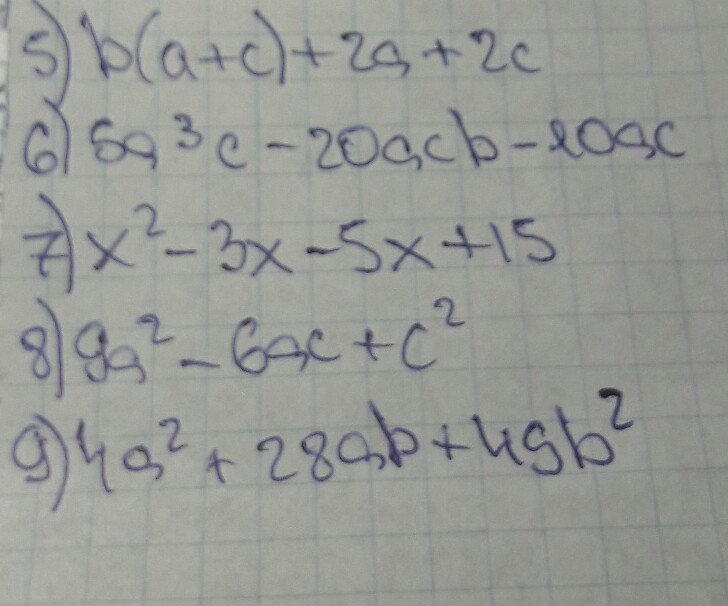 5) b(a+c)+2a+2c
6) 5a³c-20acb-10ac
7) x²-3x-5x+15
8) 9a²-6ac+c²
9) 4a²+28ab+49b²